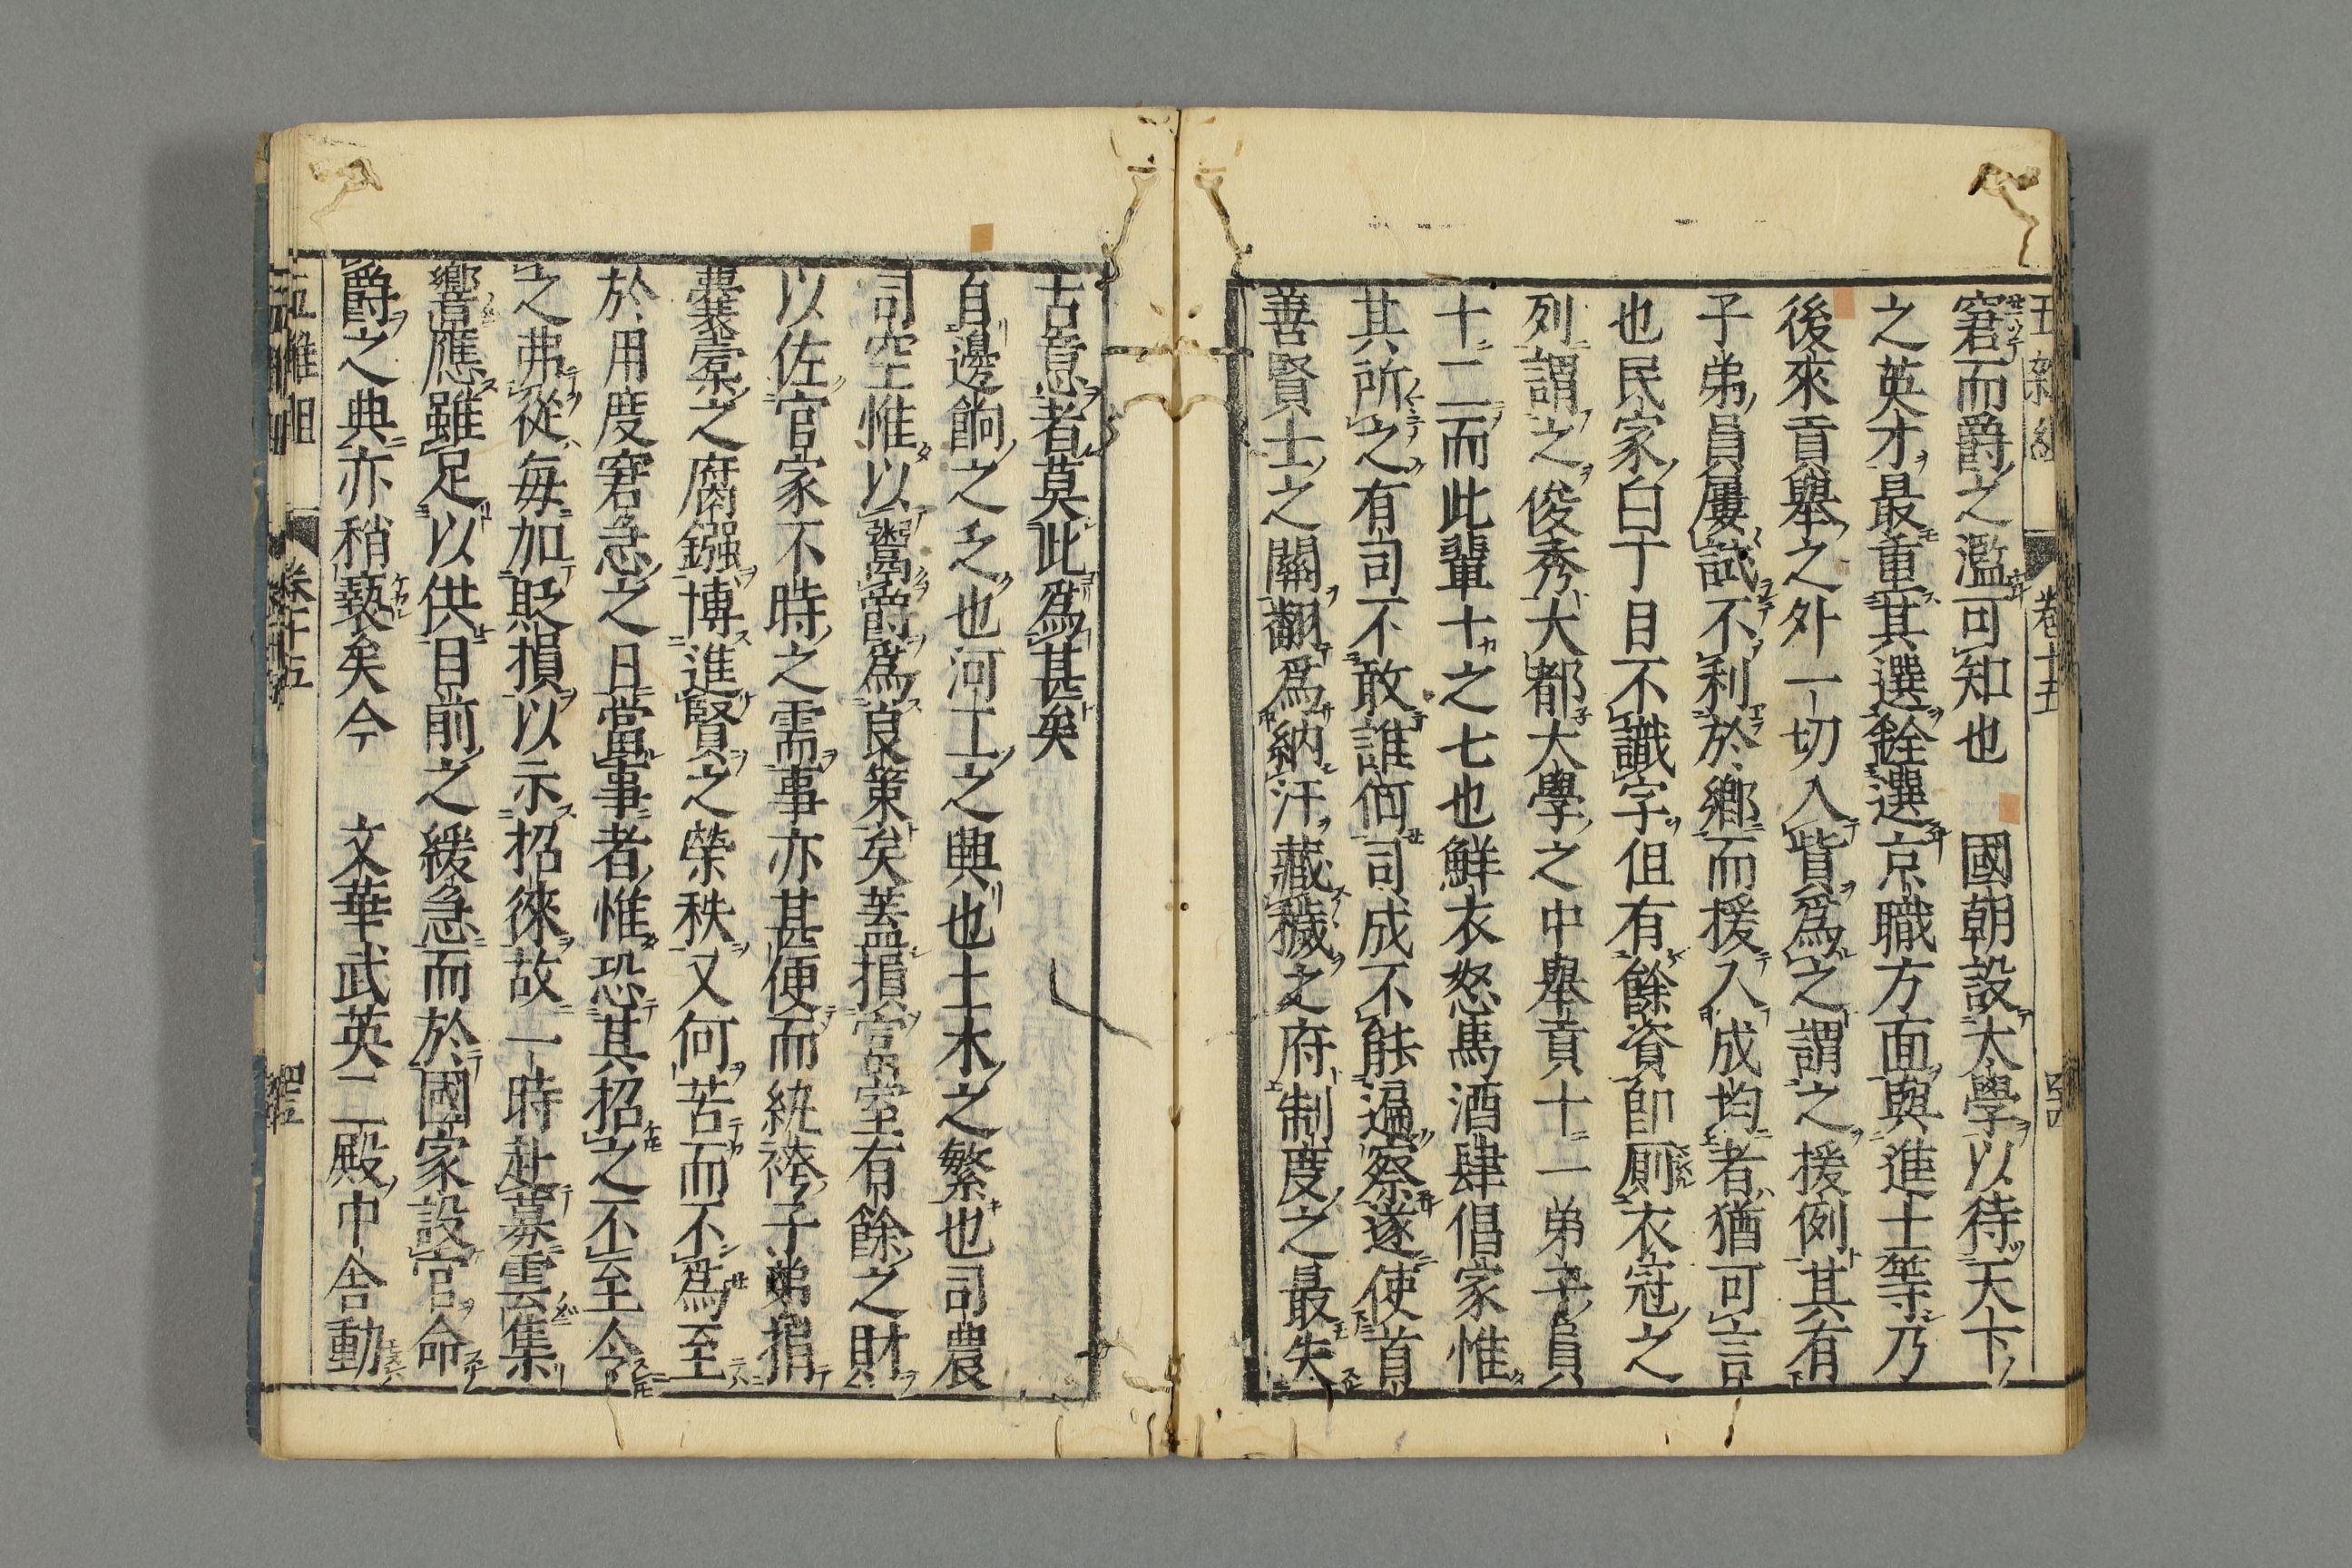 窘而爵之濫可知也　國朝設太學以待天下
之英才最重其選銓選京職方面與進士等乃
後來貢舉之外一切入貲爲之謂之援例其有
子弟員屢試不利於鄉而援入成均者猶可言
也民家白丁目不識字但有餘資即厠衣冠之
列謂之俊秀大都大學之中舉貢十一弟子員
十二而此輩十之七也鮮衣怒馬酒肆倡家惟
其所之有司不敢誰何司成不能遍察遂使首
善賢士之關翻爲納汙藏穢之府制度之最失
古意者莫此爲甚矣
自邊餉之乏也河工之興也土木之繁也司農
司空惟以鬻爵爲良策矣蓋損宮室有餘之財
以佐官家不時之需事亦甚便而紈袴子弟捐
囊橐之腐鏹博進賢之榮秩又何苦而不爲至
於用度窘急之日當事者惟恐其招之不至今
之弗從毎加貶損以示招徠故一時赴募雲集
響應雖足以供目前之緩急而於國家設官命
爵之典亦稍褻矣今　文華武英二殿中舍動
五雜組
卷十五